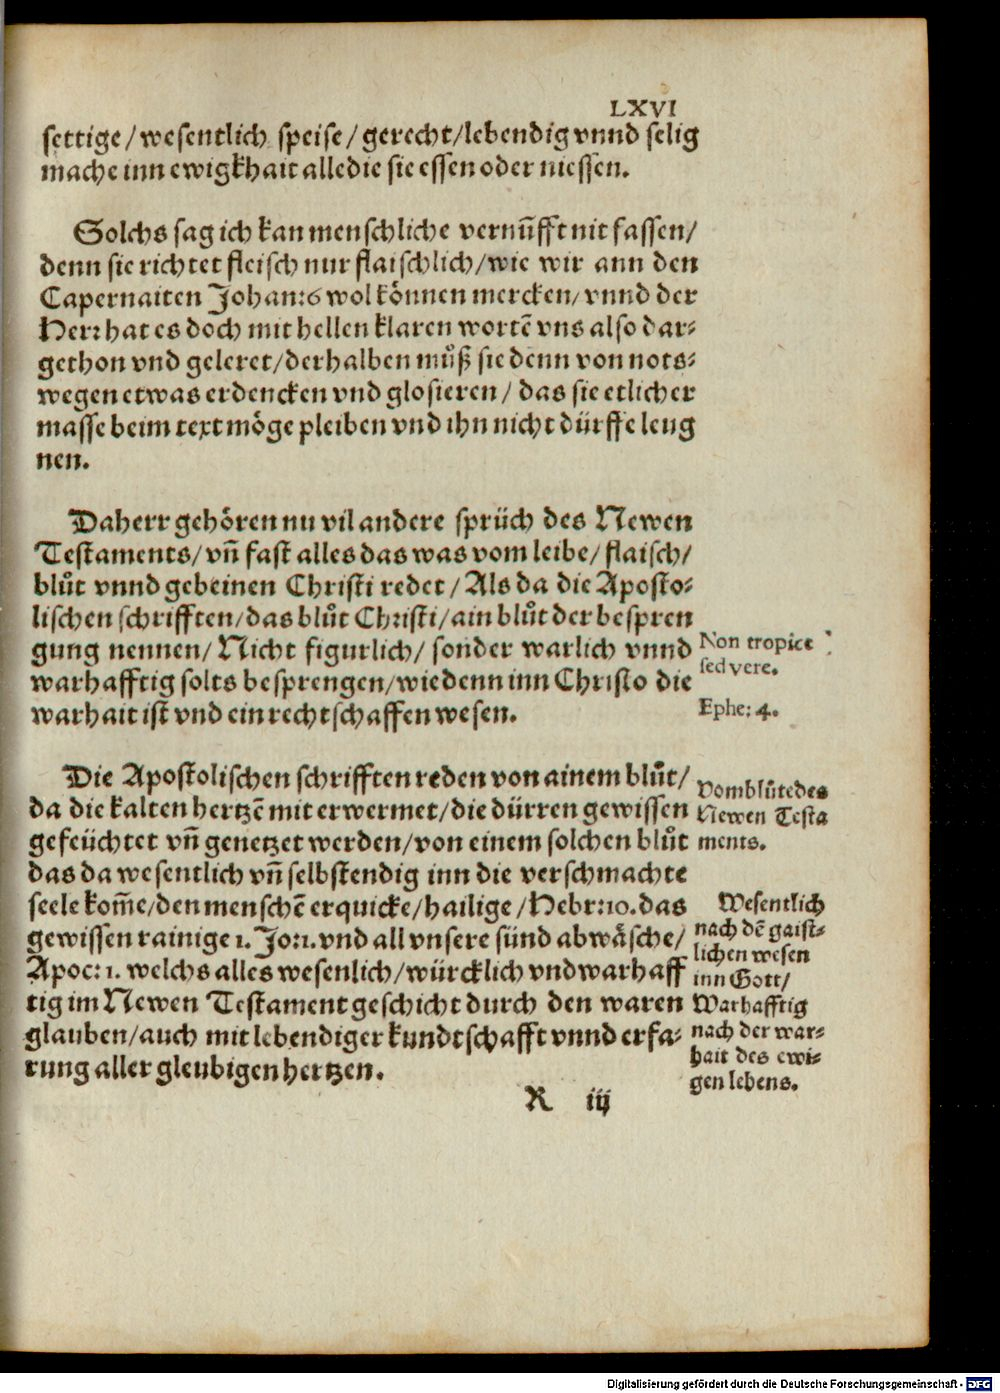 LXVI
settige/wesentlich speise/gerecht/lebendig vnnd selig
mache inn ewigkhait alle die sie essen oder niessen.
Solchs sag ich kan menschliche vernũfft nit fassen/
denn sie richtet fleisch nur flaischlich/wie wir ann den
Capernaiten Johan:6 wol können mercken/vnnd der
Herr hat es doch mit hellen klaren wortẽ vns also dar-
gethon vnd geleret/derhalben můß sie denn von nots-
wegen etwas erdencken vnd glosieren/ das sie etlicher
masse beim text möge pleiben vnd ihn nicht dürffe leug
nen.
Daherr gehören nu vil andere sprüch des Newen
Testaments/vñ fast alles das was vom leibe/flaisch/
blůt vnnd gebeinen Christi redet/Als da die Aposto-
lischen schrifften/das blůt Christi/ain blůt der bespren
gung nennen/Nicht figurlich/ sonder warlich vnnd
warhafftig solts besprengen/wie denn inn Christo die
warhait ist vnd ein rechtschaffen wesen.
Non tropice
sed vere.
Ephe: 4.
Die Apostolischen schrifften reden von ainem blůt/
da die kalten hertzẽ mit erwermet/die dürren gewissen
gefeüchtet vñ genetzet werden/von einem solchen blůt
das da wesentlich vñ selbstendig inn die verschmachte
seele kom̃e/den menschẽ erquicke/hailige/Hebr:10.das
gewissen rainige 1. Jo:1.vnd all vnsere sünd abwäsche/
Apoc: 1. welchs alles wesenlich/würcklich vnd warhaff
tig im Newen Testament geschicht durch den waren
glauben/auch mit lebendiger kundtschafft vnnd erfa-
rung aller gleubigen hertzen.
Vom blůte des
Newen Testa
ments.
Wesentlich
nach dẽ gaist-
lichen wesen
inn Gott/
Warhafftig
nach der war-
hait des ewi-
gen lebens.
R iij
Digitalisierung gefördert durch die Deutsche Forschungsgemeinschaft - DFG